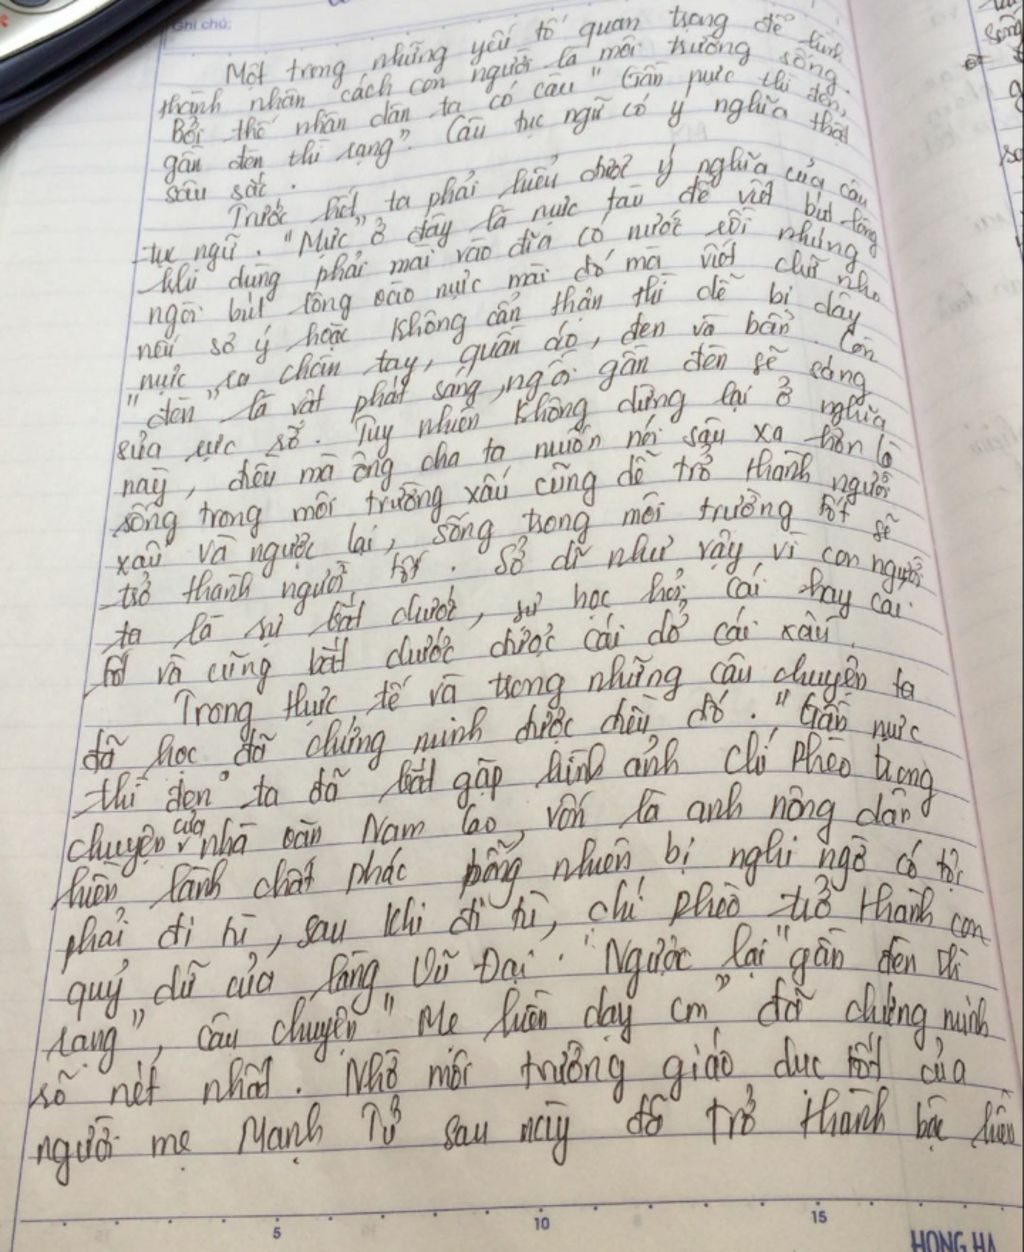 Ghi chú:
Một trong những yếu tố quan trọng để hình
thành nhân cách con người là môi trường sống.
Bởi thế nhân dân ta có câu "Gần mực thì đen,
gần đèn thì rạng". Câu tục ngữ có ý nghĩa thật
sâu sắc.
Trước hết, ta phải hiểu được ý nghĩa của câu
tục ngữ. "Mực" ở đây là mực tàu để viết bút lông
khi dùng phải mài vào đĩa có nước rồi nhúng
ngòi bút lông vào mực mài đó mà viết chữ nho
nếu sơ ý hoặc không cẩn thận thì dễ bị dây
mực ra chân tay, quần áo, đen và bẩn. Còn
"đèn" là vật phát sáng, ngồi gần đèn sẽ sáng
sủa rực rỡ. Tuy nhiên không dừng lại ở nghĩa
này, điều mà ông cha ta muốn nói sâu xa hơn là
sống trong môi trường xấu cũng dễ trở thành người
xấu và ngược lại, sống trong môi trường tốt sẽ
trở thành người tốt. Sở dĩ như vậy vì con người
ta là sự bắt chước, sự học hỏi cái hay cái
tốt và cũng bắt chước được cái dở cái xấu.
Trong thực tế và trong những câu chuyện ta
đã học đã chứng minh được điều đó. "Gần mực
thì đen" ta đã bắt gặp hình ảnh Chí Phèo trong
chuyện của nhà văn Nam Cao, vốn là anh nông dân
hiền lành chất phác bỗng nhiên bị nghi ngờ có tội
phải đi tù, sau khi đi tù, chí phèo trở thành con
quỷ dữ của làng Vũ Đại. Ngược lại "gần đèn thì
rạng", câu chuyện "Mẹ hiền dạy con" đã chứng minh
rõ nét nhất. Nhờ môi trường giáo dục tốt của
người mẹ Mạnh Tử sau này đã trở thành bậc hiền
5 10 15
HONG HA